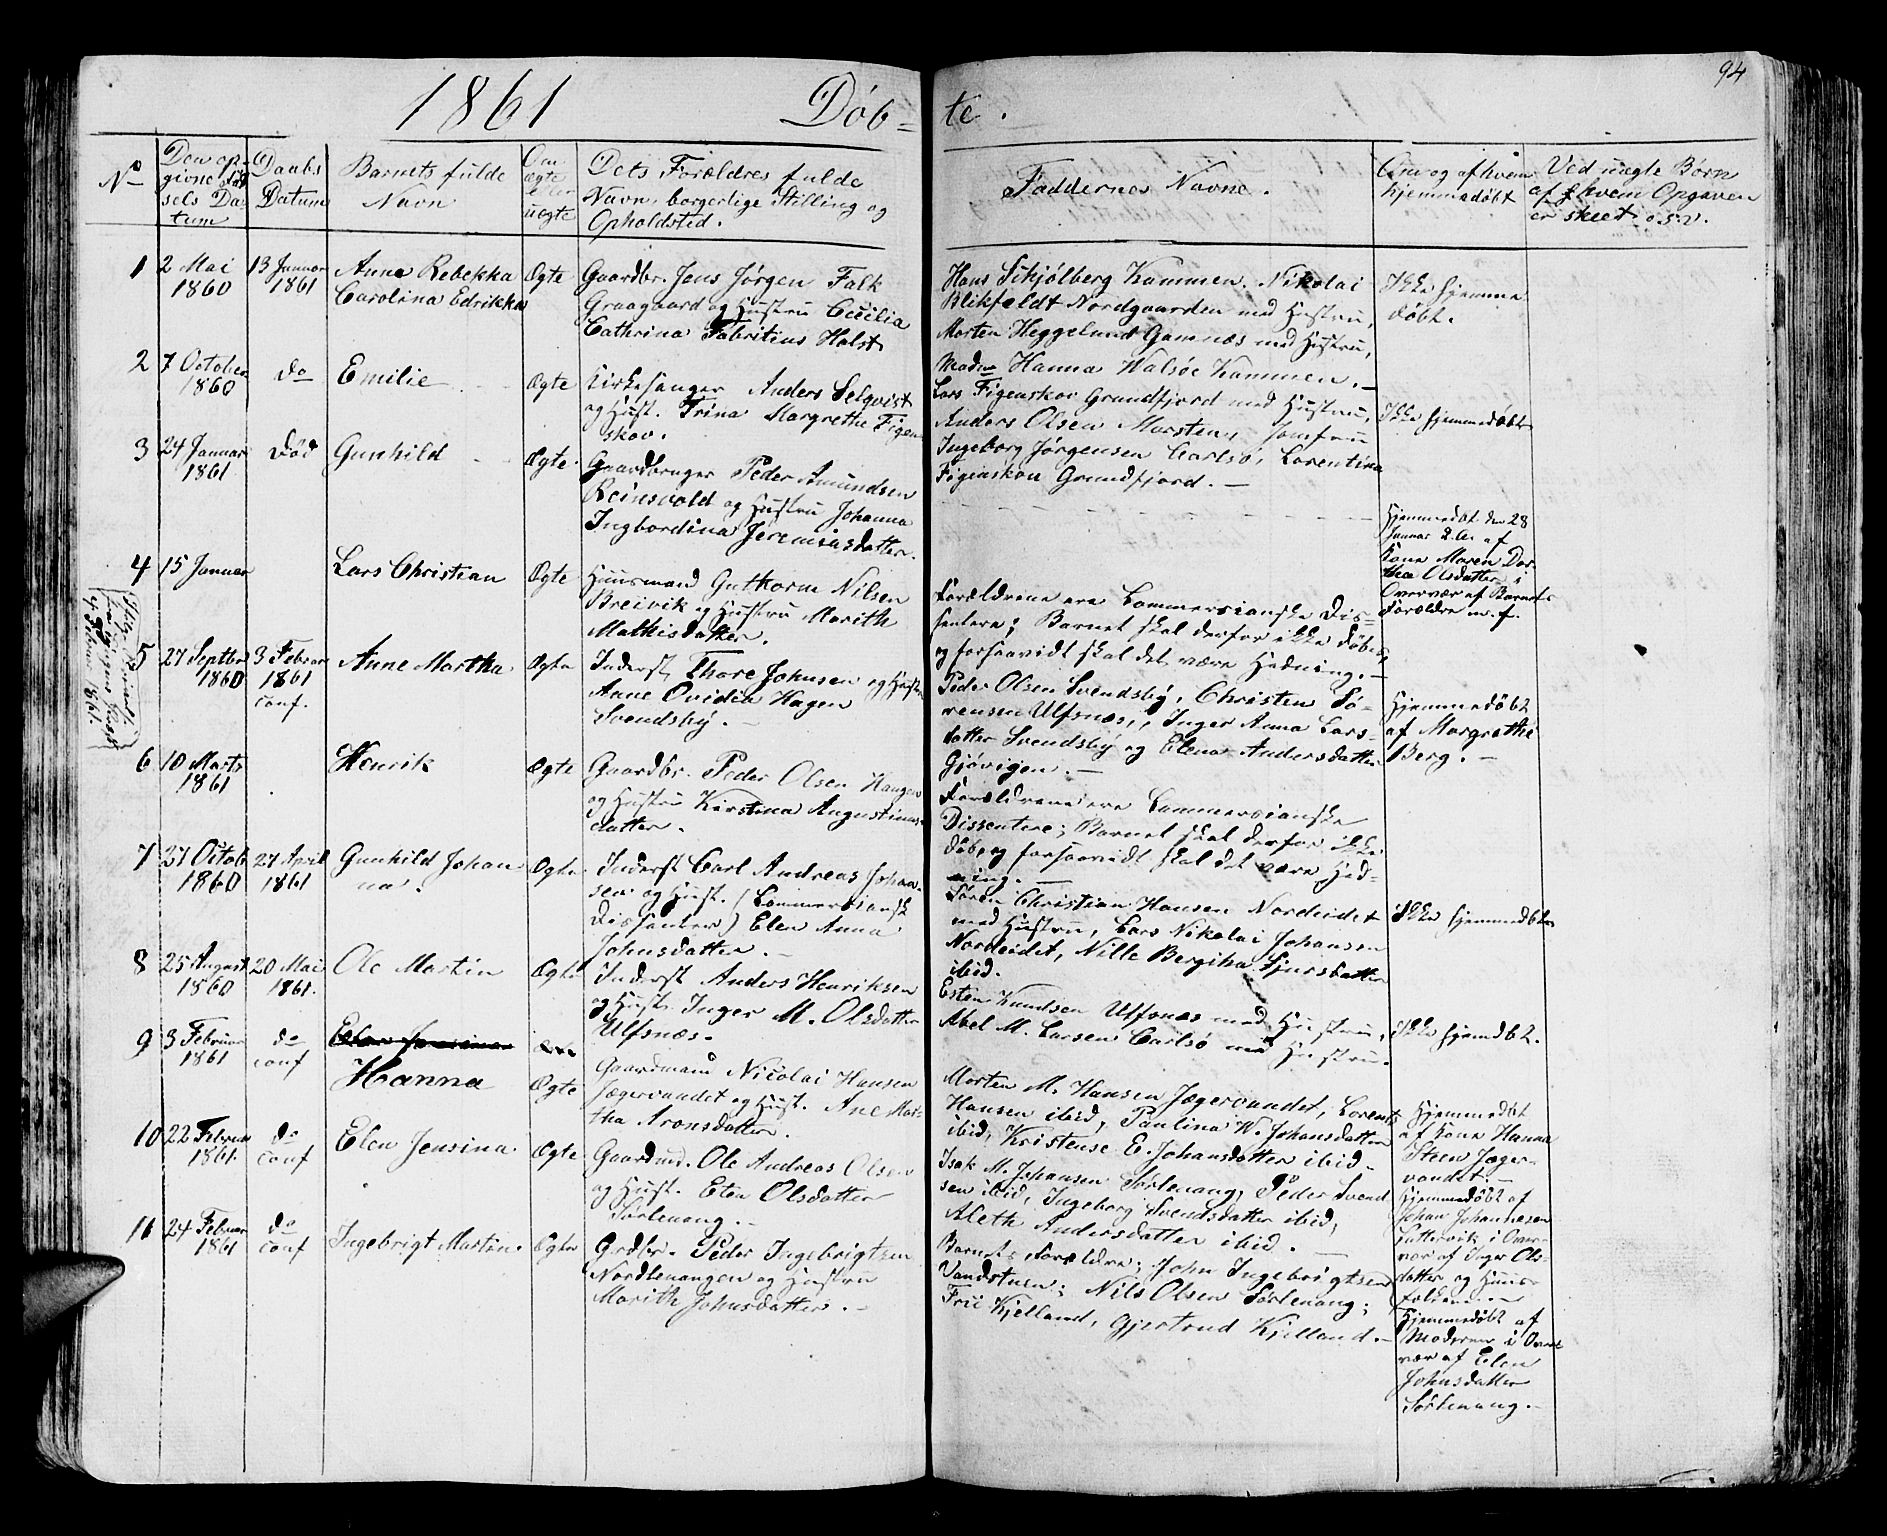 1861 Døb=
te.
94
No
Den op-
givne Fød
sels Da-
tum
Daabs
Datum
Barnets fulde
Navn
Om
ægte
eller
uægte
Dets Forældres fulde
Navn, borgerlige Stilling og
Opholdsted.
Faddernes Navne.
Om og af hvem
hjemmedøbt
Ved uægte Børn
af hvem Opgaven
er skeet o.s.v.
1
2 Mai
1860
13 Januar
1861
Anne Rebekka
Carolina Edrikka
Ægte
Gaardbr. Jens Jørgen Falk
Graagaard og Hustru Cecilia
Cathrina Fabritius Holst
Hans Schjølberg Kammen, Nikolai
Blikfeldt Nordgaarden med Hustru,
Morten Heggelund Gamnæs med Hustru,
Madme Hanna Walsøe Kammen.—
Ikke hjemme
døbt.
2
7 October
1860
do
Emilie
Ægte
Kirkesanger Anders Selqvist
og Hust. Trina Margrethe Figen
skov.
Lars Figenskov Grundfjord med Hustru,
Anders Olsen Marsten, Jomfru
Ingeborg Jørgensen Carlsø, Lorentina
Figenskou Grundfjord.—
Ikke hjemmedøbt
3
24 Januar
1861
Død
Gunhild
Ægte.
Gaardbruger Peder Amundsen
Reinsvold og Hustru Johanna
Ingbordina Jeremiasdatter.
Hjemmedøbt den 28
Januar af
Kone Maren Dor-
thea Olsdatter i
Overvær af Barnets
Forældre m.f.
4
15 Januar
Lars Christian
Ægte
Huusmand Guthorm Nilsen
Breivik og Hustru Marith
Mathisdatter.
Forældrene ere Lammersianske Dis-
sentere; Barnet skal derfor ikke døbes,
og forsaavidt skal det være Hedning.—
4 Februar 1861.
5
27 Septber
1860
3 Februar
1861
conf.
Anne Martha
Ægte
Inderst Thore Johnsen og Hustr
Anne Ovidia Hagen
Svendsby.—
Peder Olsen Svendsby, Christen Sø-
rensen Ulfsnæs, Inger Anna Lars-
datter Svendsby og Elena Andersdatter
Gjøvigen.—
Hjemmedøbt
af Margrethe
Berg.—
6
10 Marts
1861
Henrik
Ægte
Gaardbr. Peder Olsen Haugen
og Hustru Kirstina Augustinus-
datter.
Forældrene ere Lammersianske
Dissentere; Barnet skal derfor ikke
døbes, og forsaavidt skal det være Hed-
ning.—
7
27 Octob
1860
27 April
1861
Gunhild Johan
na.
Ægte
Inderst Carl Andreas Johan-
sen og Hust. (Lammersiansk
Dissenter) Elen Anna
Johnsdatter.—
Søren Christian Hansen Nordeidet
med Hustru, Lars Nikolai Johansen
Nordeidet, Nille Bergitha Sjursdatter
ibid.
Ikke hjemmedøbt
8
25 August
1860
20 Mai
1861.
Ole Martin
Ægte
Inderst Anders Henriksen
og Hust. Inger M. Olsdatter
Ulfsnæs.
Esten Knudsen Ulfsnæs med Hustru,
Abel M. Larsen Carlsø med Hustru.
Ikke hjemdøbt.
9
3 Februar
1861
do
conf
Hanna
Ægte
Gaardmand Nicolai Hansen
Jægervandet og Hust. Ane Mar-
tha Aronsdatter.
Morten M. Hansen Jægervandet, Lorents
Hansen ibid, Paulina W. Johansdatter
ibid, Kristense E. Johansdatter ibid.
Hjemmedøbt
af Kone Hanna
Steen Jæger-
vandet.—
10
22 Februar
1861.
do
conf
Elen Jensina.
Ægte
Gaardmd. Ole Andreas Olsen
og Hust. Elen Olsdatter
Sørlenang.—
Isak M. Johansen Sørlenang, Peder Svend
sen ibid, Ingeborg Svendsdatter ibid,
Aleth Andersdatter ibid.—
Hjemmedøbt af
Johan Johannesen
Lattervik i Over-
vær af Inger Ols-
datter og Huus-
folkene.—
11
24 Februar
1861
do
conf
Ingebrigt Martin.
Ægte
Grdbr. Peder Ingebrigtsen
Nordlenangen og Hustru
Marith Johnsdatter.—
Barnets Forældre; John Ingebrigtsen
Vandstuen; Nils Olsen Sørlenang;
Frii Kjelland, Gjertrud Kjelland.—
Hjemmedøbt af
Moderen i Over
vær af Elen
Johnsdatter
Sørlenang.—